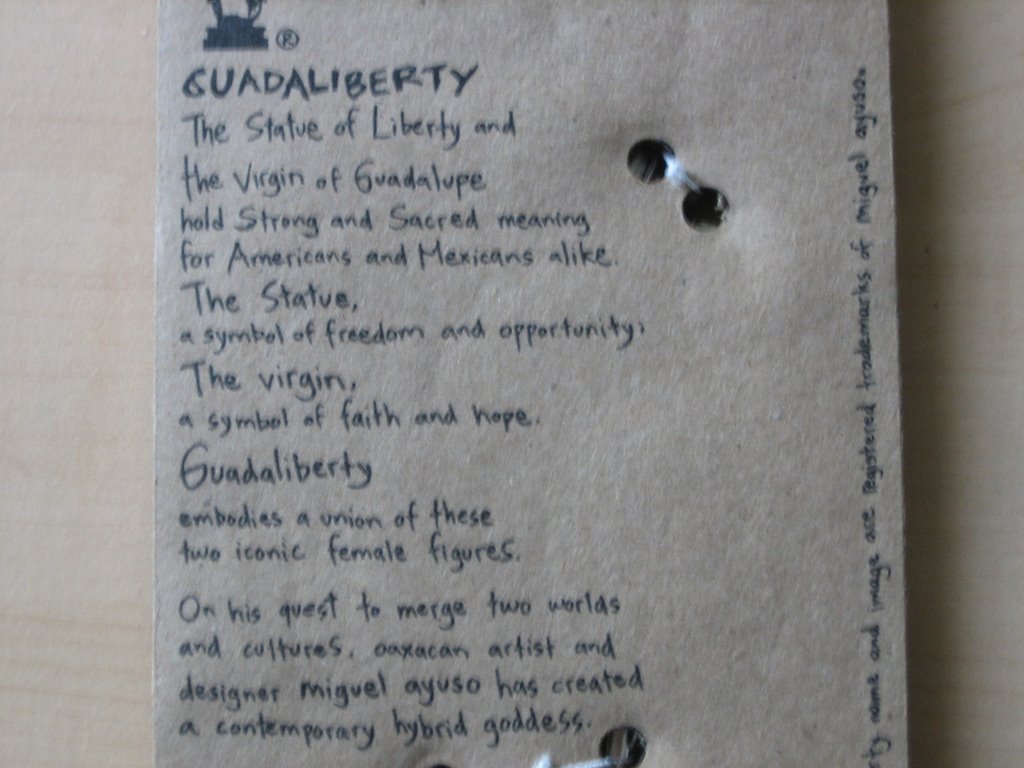 ®
GUADALIBERTY
The Statue of Liberty and
the Virgin of Guadalupe
hold Strong and Sacred meaning
for Americans and Mexicans alike.
The Statue,
a symbol of freedom and opportunity;
The virgin,
a symbol of faith and hope.
Guadaliberty
embodies a union of these
two iconic female figures.
On his quest to merge two worlds
and cultures, oaxacan artist and
designer miguel ayuso has created
a contemporary hybrid goddess.
rty name and image are registered trademarks of miguel ayuso.